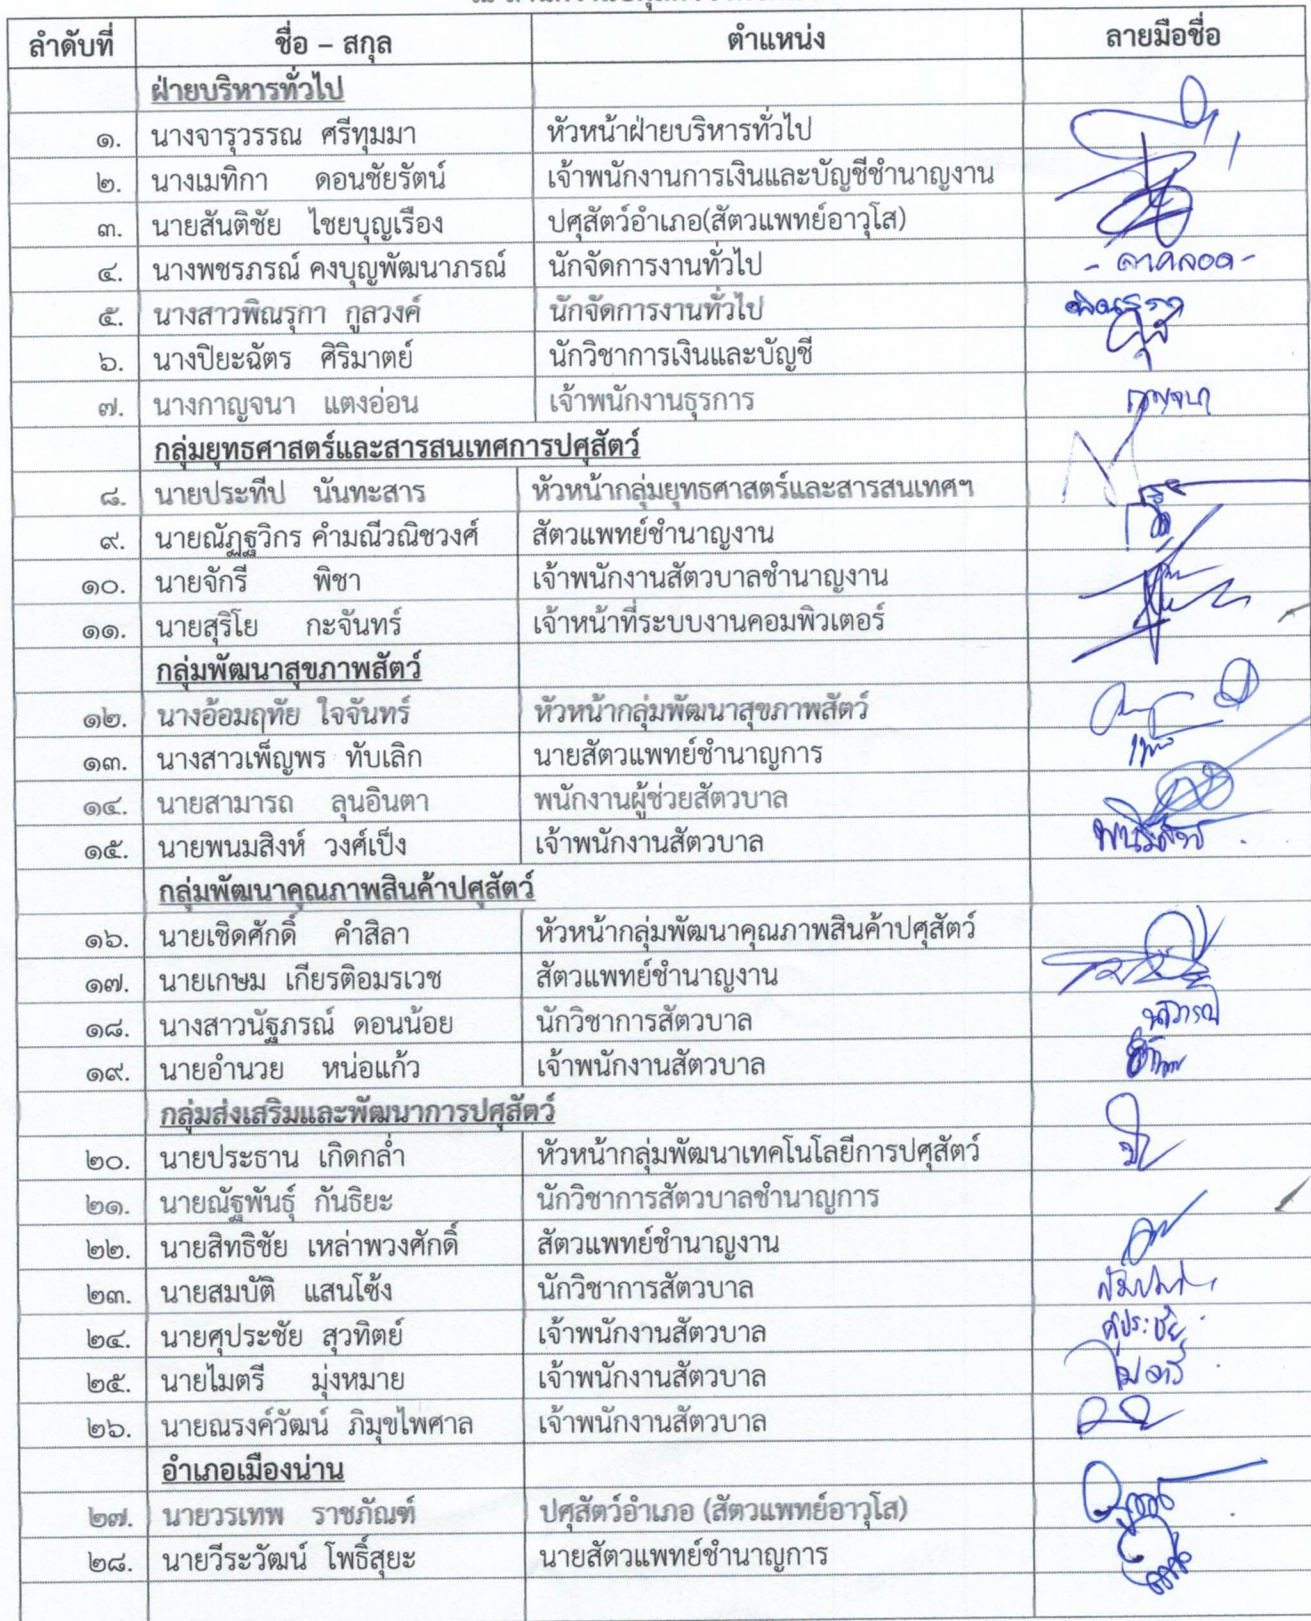 ลำดับที่ ชื่อ – สกุล ตำแหน่ง ลายมือชื่อ
ฝ่ายบริหารทั่วไป
๑. นางจารุวรรณ ศรีทุมมา หัวหน้าฝ่ายบริหารทั่วไป
๒. นางเมทิกา ดอนชัยรัตน์ เจ้าพนักงานการเงินและบัญชีชำนาญงาน
๓. นายสันติชัย ไชยบุญเรือง ปศุสัตว์อำเภอ(สัตวแพทย์อาวุโส)
๔. นางพชรภรณ์ คงบุญพัฒนาภรณ์ นักจัดการงานทั่วไป - ลาคลอด -
๕. นางสาวพิณรุกา กูลวงค์ นักจัดการงานทั่วไป
๖. นางปิยะฉัตร ศิริมาตย์ นักวิชาการเงินและบัญชี
๗. นางกาญจนา แตงอ่อน เจ้าพนักงานธุรการ กาญจนา
กลุ่มยุทธศาสตร์และสารสนเทศการปศุสัตว์
๘. นายประทีป นันทะสาร หัวหน้ากลุ่มยุทธศาสตร์และสารสนเทศฯ
๙. นายณัฏฐวิกร คำมณีวณิชวงศ์ สัตวแพทย์ชำนาญงาน
๑๐. นายจักรี พิชา เจ้าพนักงานสัตวบาลชำนาญงาน
๑๑. นายสุริโย กะจันทร์ เจ้าหน้าที่ระบบงานคอมพิวเตอร์
กลุ่มพัฒนาสุขภาพสัตว์
๑๒. นางอ้อมฤทัย ใจจันทร์ หัวหน้ากลุ่มพัฒนาสุขภาพสัตว์
๑๓. นางสาวเพ็ญพร ทับเลิก นายสัตวแพทย์ชำนาญการ
๑๔. นายสามารถ ลุนอินตา พนักงานผู้ช่วยสัตวบาล
๑๕. นายพนมสิงห์ วงศ์เป็ง เจ้าพนักงานสัตวบาล
กลุ่มพัฒนาคุณภาพสินค้าปศุสัตว์
๑๖. นายเชิดศักดิ์ คำสิลา หัวหน้ากลุ่มพัฒนาคุณภาพสินค้าปศุสัตว์
๑๗. นายเกษม เกียรติอมรเวช สัตวแพทย์ชำนาญงาน
๑๘. นางสาวนัฐภรณ์ ดอนน้อย นักวิชาการสัตวบาล
๑๙. นายอำนวย หน่อแก้ว เจ้าพนักงานสัตวบาล
กลุ่มส่งเสริมและพัฒนาการปศุสัตว์
๒๐. นายประธาน เกิดกล่ำ หัวหน้ากลุ่มพัฒนาเทคโนโลยีการปศุสัตว์
๒๑. นายณัฐพันธุ์ กันธิยะ นักวิชาการสัตวบาลชำนาญการ
๒๒. นายสิทธิชัย เหล่าพวงศักดิ์ สัตวแพทย์ชำนาญงาน
๒๓. นายสมบัติ แสนโซ้ง นักวิชาการสัตวบาล
๒๔. นายศุประชัย สุวทิตย์ เจ้าพนักงานสัตวบาล ศุประชัย
๒๕. นายไมตรี มุ่งหมาย เจ้าพนักงานสัตวบาล ไมตรี
๒๖. นายณรงค์วัฒน์ ภิมุขไพศาล เจ้าพนักงานสัตวบาล
อำเภอเมืองน่าน
๒๗. นายวรเทพ ราชภัณฑ์ ปศุสัตว์อำเภอ (สัตวแพทย์อาวุโส)
๒๘. นายวีระวัฒน์ โพธิ์สุยะ นายสัตวแพทย์ชำนาญการ